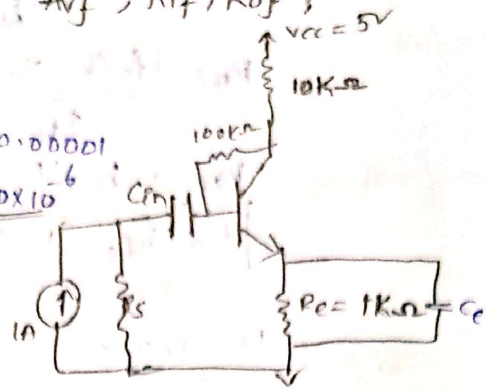 Avf, Rif, Rof,
Vcc = 5V
10KΩ
100KΩ
0.00001
0x10^-6
Cin
Rs
In
Re = 1KΩ
Ce